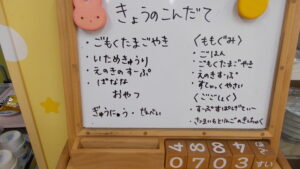 きょうのこんだて
・ごもくたまごやき
・いためきゅうり
・えのきのすーぷ
・ばなな
おやつ
ぎゅうにゅう・せんべい
〈ももぐみ〉
・ごはん
・ごもくたまごやき
・えのきすーぷ
・すてぃっくやさい
〈ごごしょく〉
・すーぷすぱげてぃー
・さつまいもとりんごのきんちゃく
4 8 8 4
0 7 0 3